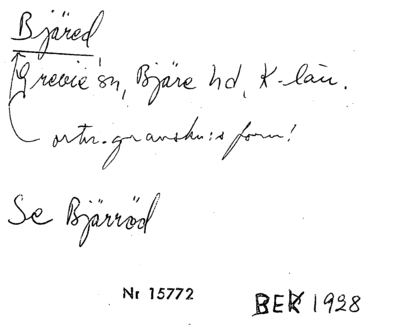 Bjäred
Grevie sn, Bjäre hd, K-län.
ortn.granskn:s form!
Se Bjärröd
Nr 15772
BEK 1928